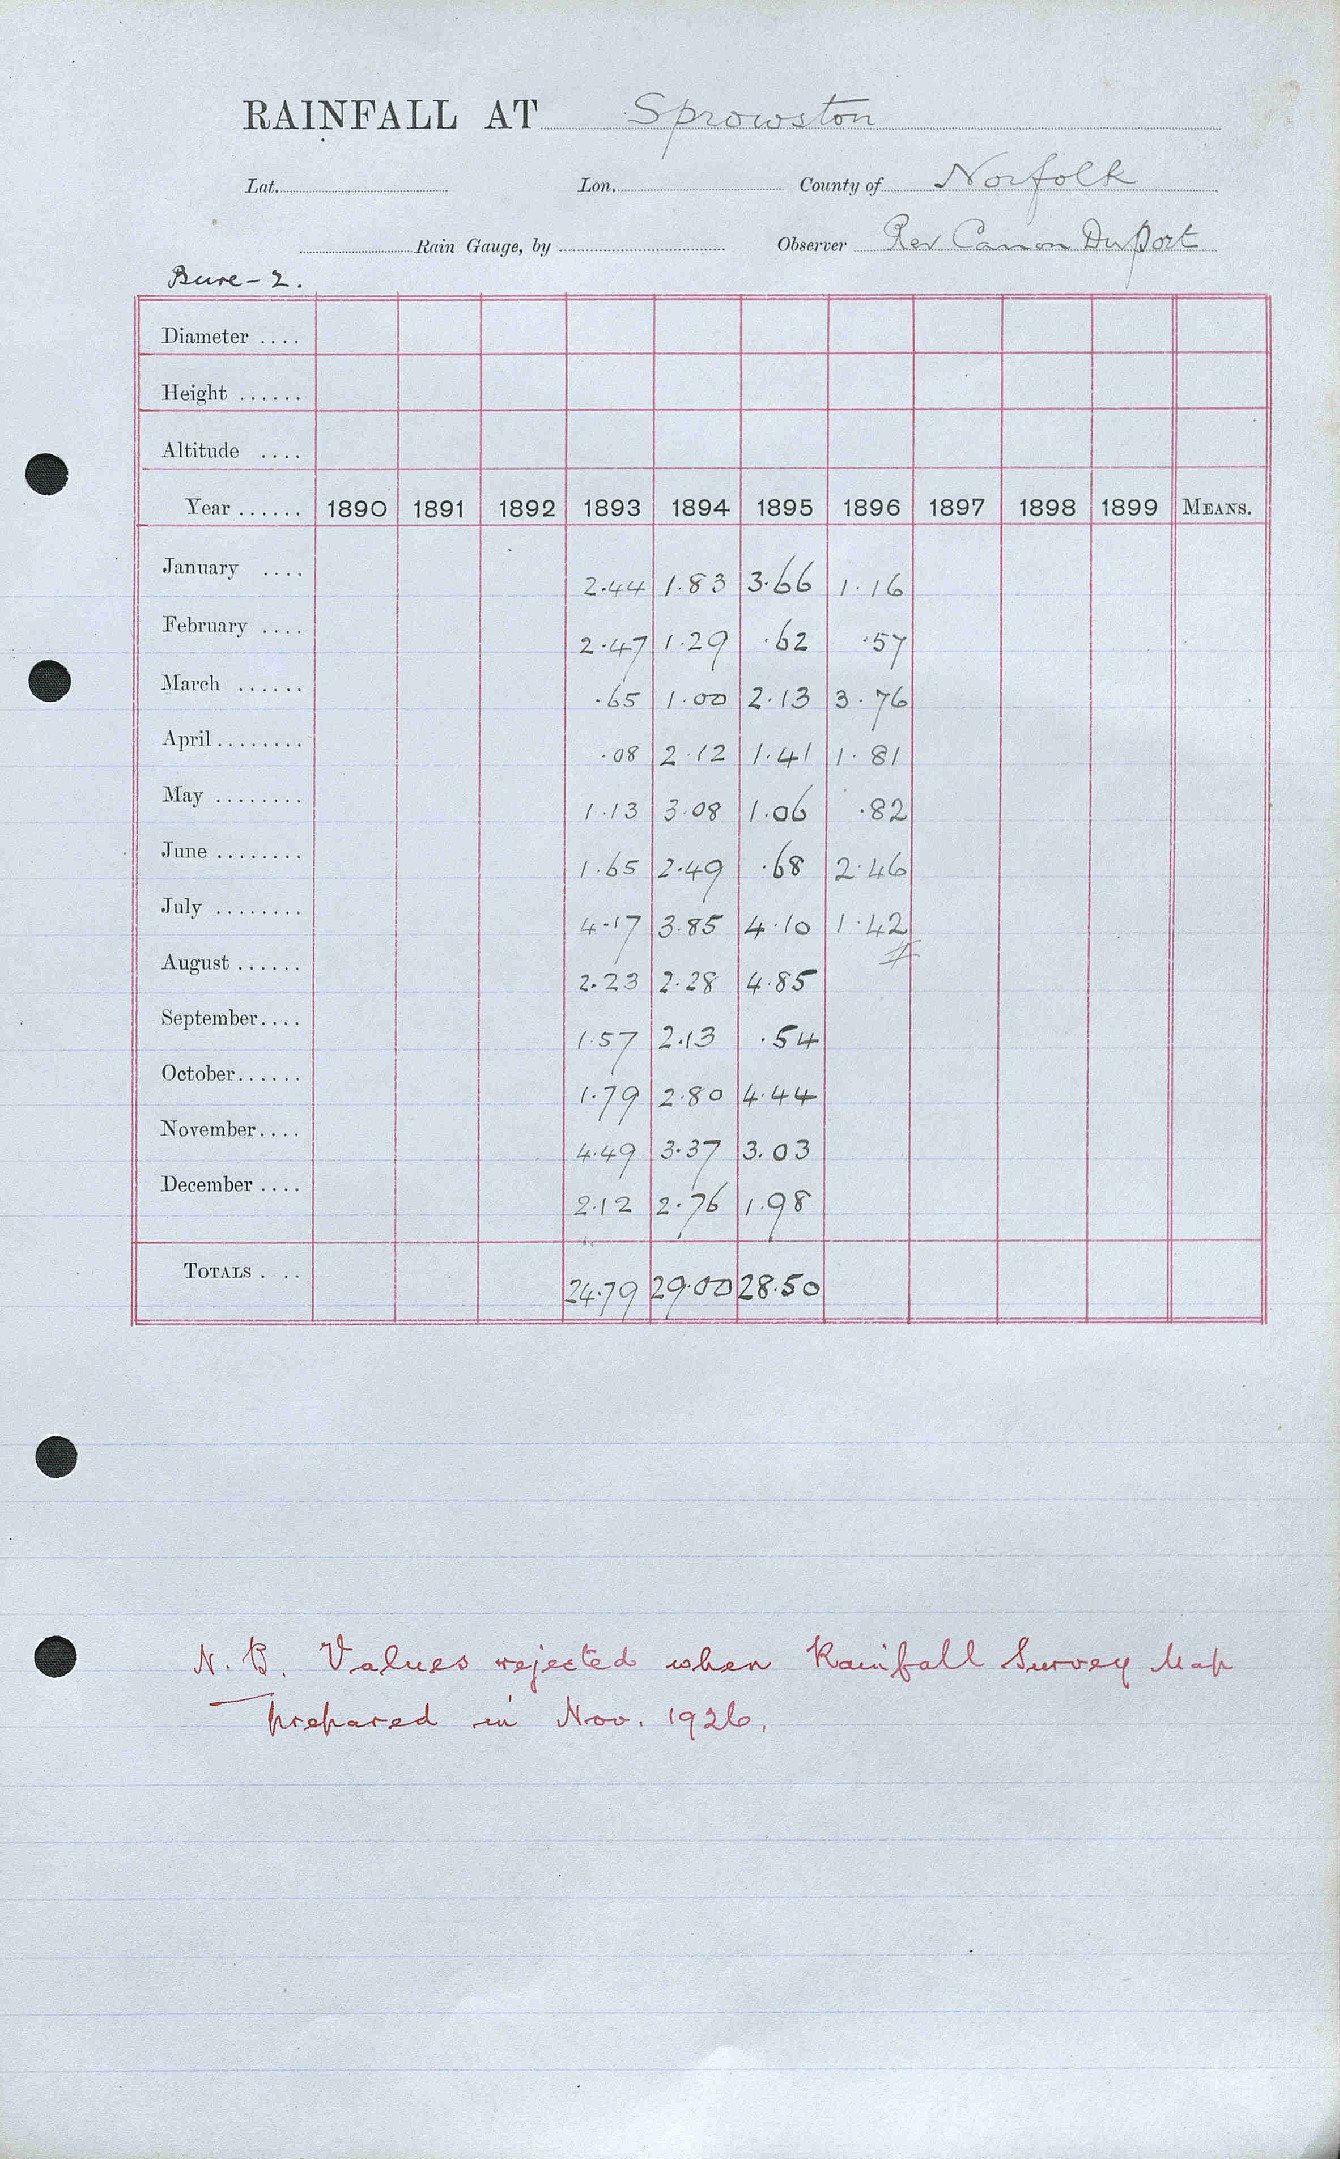 RAINFALL AT Sprowston
Lat. Lon. County of Norfolk
Rain Gauge, by Observer Rev Canon DuPort
Bure - 2.
Diameter ....
Height ......
Altitude ....
Year ...... 1890 1891 1892 1893 1894 1895 1896 1897 1898 1899 MEANS.
January .... 2.44 1.83 3.66 1.16
February .... 2.47 1.29 .62 .57
March ...... .65 1.00 2.13 3.76
April ........ .08 2.12 1.41 1.81
May ........ 1.13 3.08 1.06 .82
June ........ 1.65 2.49 .68 2.46
July ........ 4.17 3.85 4.10 1.42
August ...... 2.23 2.28 4.85 #
September.... 1.57 2.13 .54
October...... 1.79 2.80 4.44
November.... 4.49 3.37 3.03
December .... 2.12 2.76 1.98
TOTALS .... 24.79 29.00 28.50
N.B. Values rejected when Rainfall Survey Map
prepared in Nov. 1926.